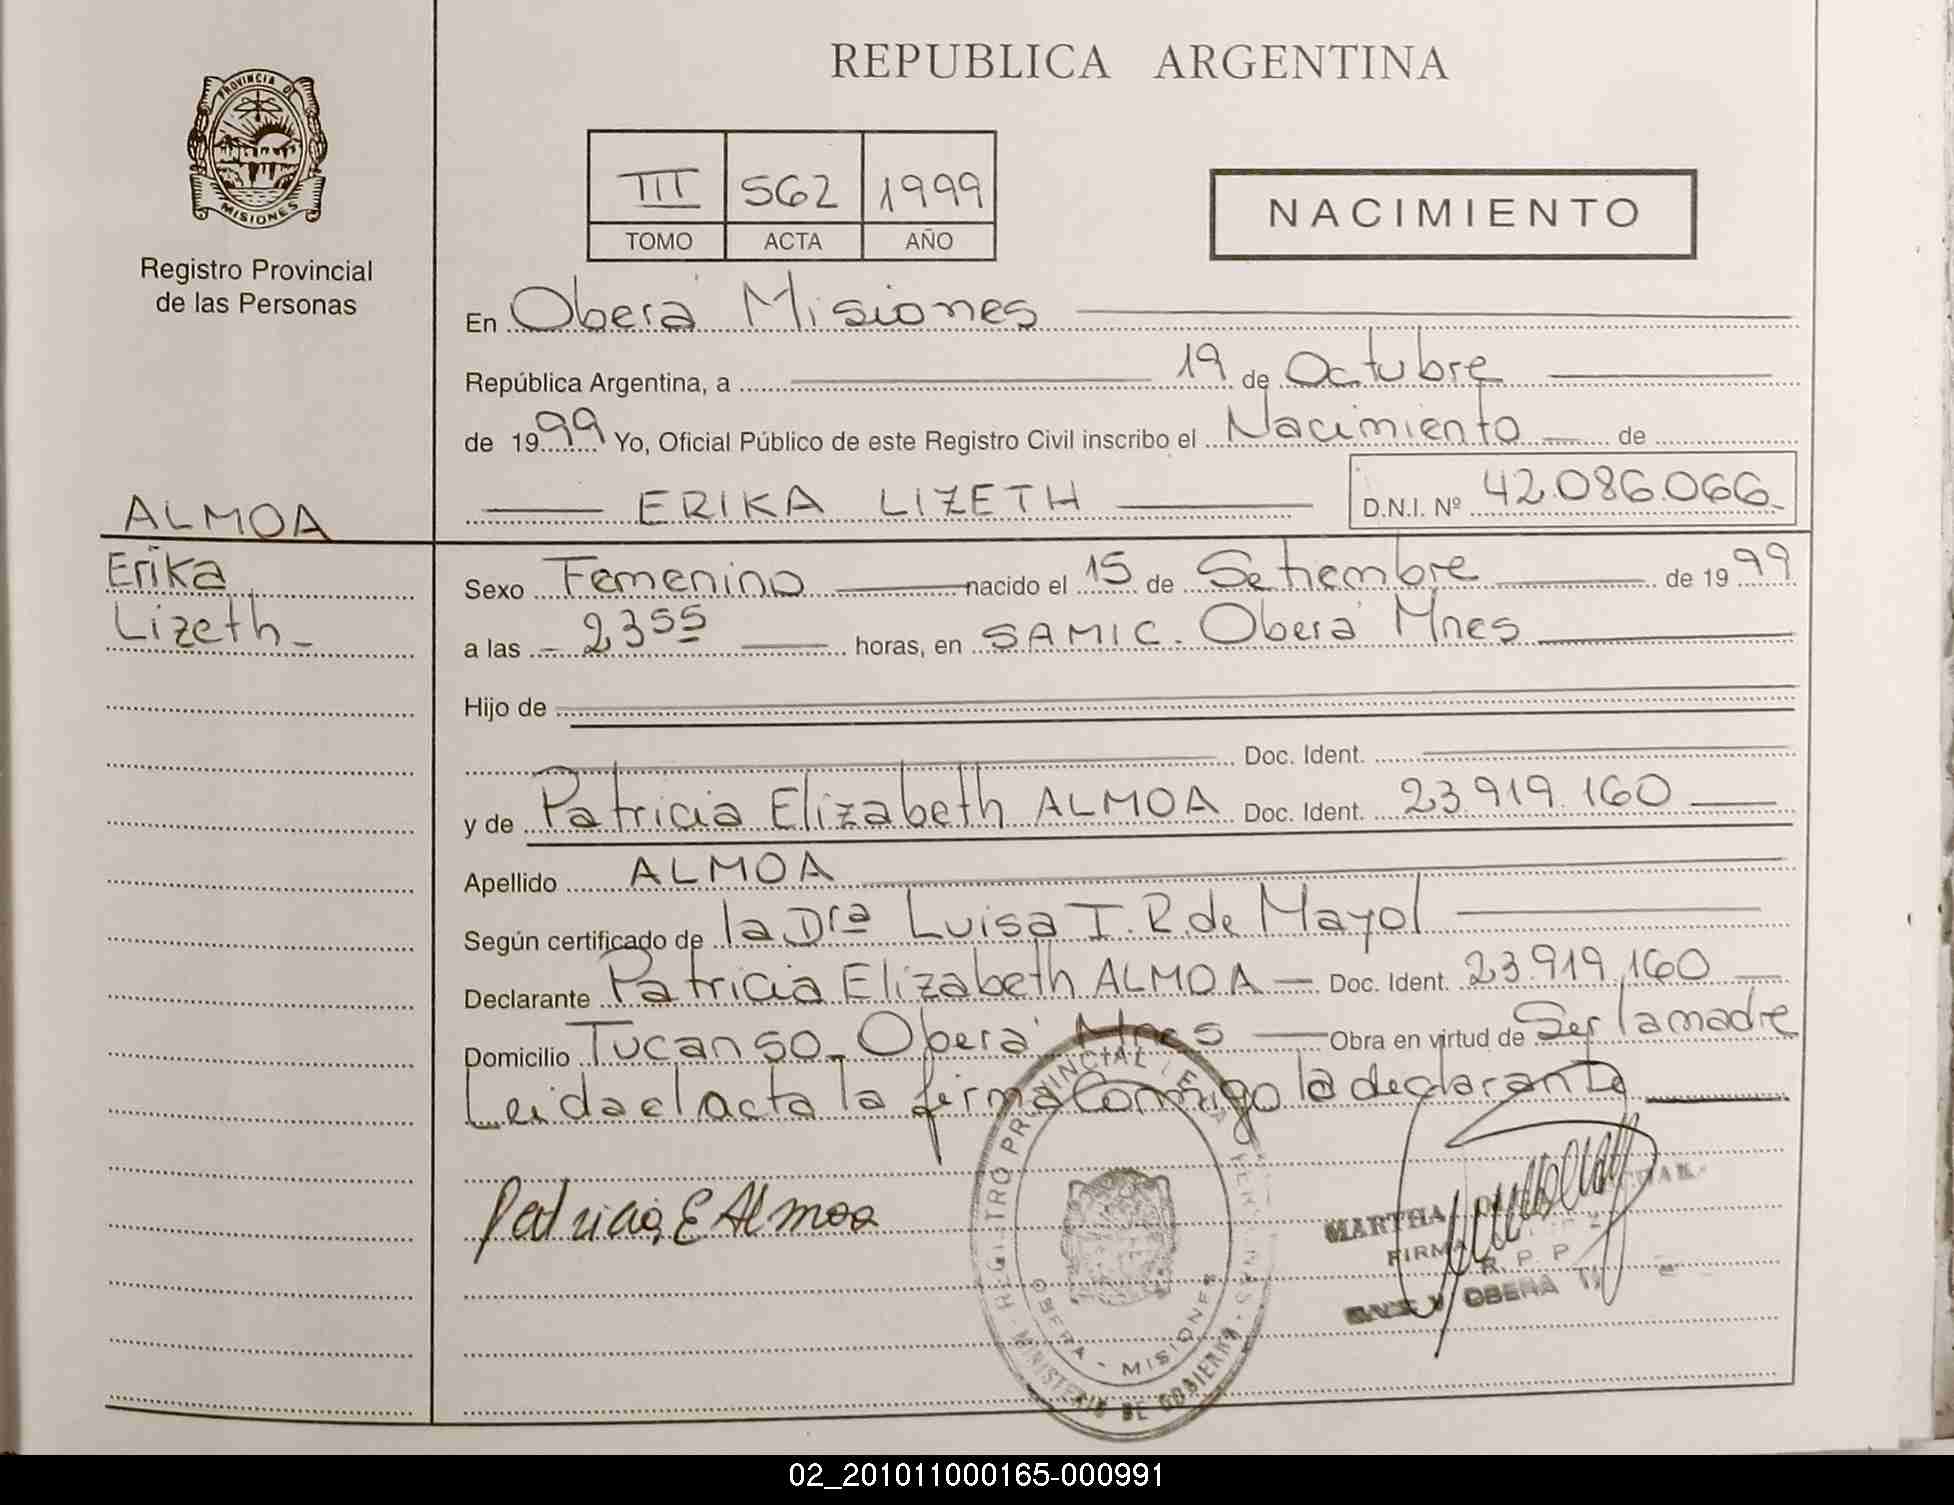 REPUBLICA ARGENTINA
PROVINCIA DE
MISIONES
Registro Provincial
de las Personas
III 562 1999
TOMO ACTA AÑO
NACIMIENTO
En Oberá Misiones
República Argentina, a 19 de Octubre
de 1999 Yo, Oficial Público de este Registro Civil inscribo el Nacimiento de
ERIKA LIZETH D.N.I. Nº 42.086.066
ALMOA
Erika
Lizeth
Sexo Femenino nacido el 15 de Setiembre de 1999
a las 23 55 horas, en SAMIC. Oberá Mnes
Hijo de
Doc. Ident.
y de Patricia Elizabeth ALMOA Doc. Ident. 23.919.160
Apellido ALMOA
Según certificado de la Dra Luisa I. R. de Mayol
Declarante Patricia Elizabeth ALMOA Doc. Ident. 23.919.160
Domicilio Tucanso Oberá Mnes Obra en virtud de Ser la madre
Leida el acta la firma Conmigo la declarante
Patricia E Almoa
REGISTRO PROVINCIAL PERSONAS
MINISTERIO DE GOBIERNO
OBERA - MISIONES
MARTHA
FIRMA
R. P. P.
OBERA
02_201011000165-000991